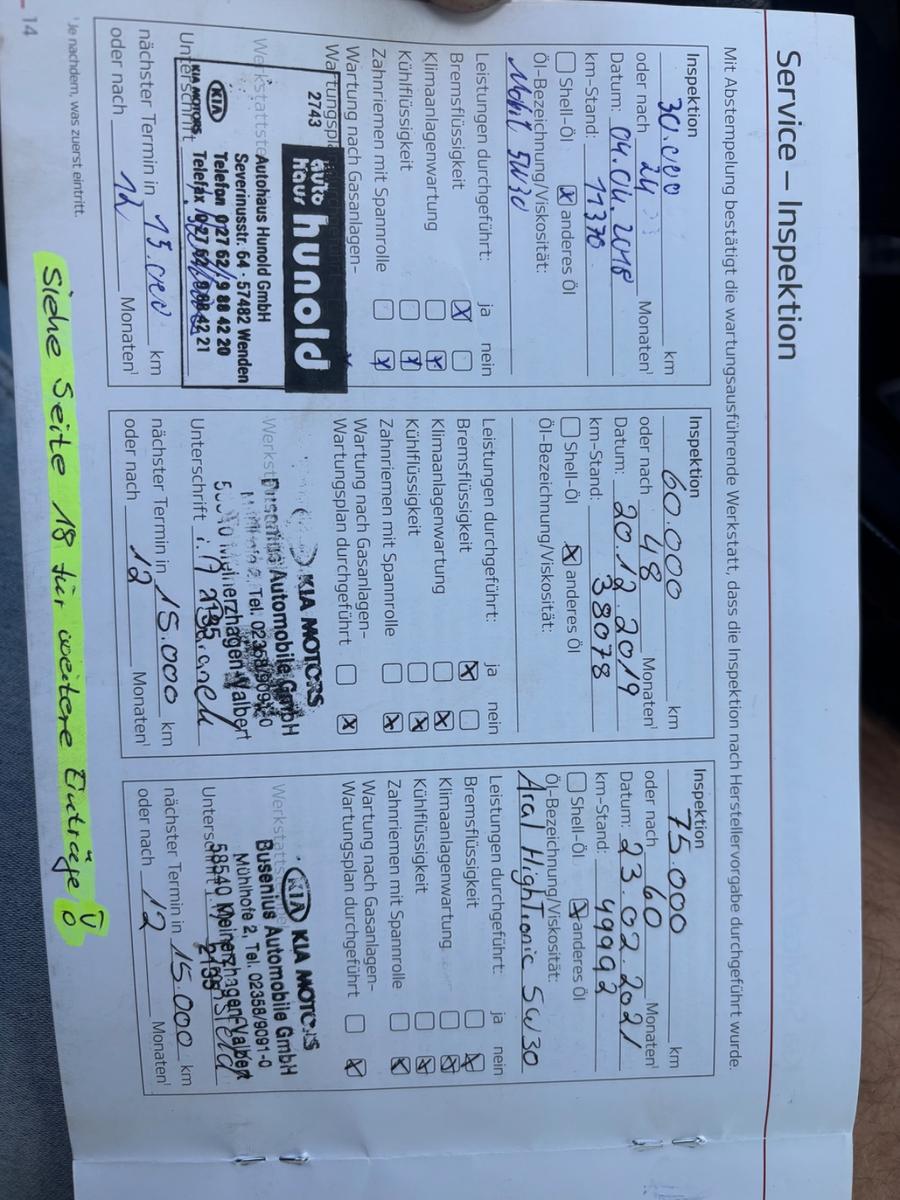 Service – Inspektion
Mit Abstempelung bestätigt die wartungsausführende Werkstatt, dass die Inspektion nach Herstellervorgabe durchgeführt wurde.
Inspektion
30.000 km
oder nach 24 Monaten¹
Datum: 04.04.2018
km-Stand: 11370
Shell-Öl x anderes Öl
Öl-Bezeichnung/Viskosität:
Mobil 5W30
Leistungen durchgeführt: ja nein
Bremsflüssigkeit x
Klimaanlagenwartung x
Kühlflüssigkeit x
Zahnriemen mit Spannrolle x
Wartung nach Gasanlagen-
Wartungspl
2743 auto haus hunold
Werkstattste
Autohaus Hunold GmbH
Severinusstr. 64 · 57482 Wenden
KIA Telefon 02762/9 88 42 20
KIA MOTORS Telefax 02762/9 88 42 21
Unterschrift
nächster Termin in 15.000 km
oder nach 12 Monaten¹
Inspektion
60.000 km
oder nach 48 Monaten¹
Datum: 20.12.2019
km-Stand: 38078
Shell-Öl x anderes Öl
Öl-Bezeichnung/Viskosität:
Leistungen durchgeführt: ja nein
Bremsflüssigkeit x
Klimaanlagenwartung x
Kühlflüssigkeit x
Zahnriemen mit Spannrolle x
Wartung nach Gasanlagen-
Wartungsplan durchgeführt x
KIA MOTORS
Werkst
Busenius Automobile GmbH
2, Tel. 02358/9091-0
Meinerzhagen-Valbert
Unterschrift i.A
nächster Termin in 15.000 km
oder nach 12 Monaten¹
Inspektion
75.000 km
oder nach 60 Monaten¹
Datum: 23.02.2021
km-Stand: 49992
Shell-Öl x anderes Öl
Öl-Bezeichnung/Viskosität:
Aral HighTronic 5W30
Leistungen durchgeführt: ja nein
Bremsflüssigkeit x
Klimaanlagenwartung x
Kühlflüssigkeit x
Zahnriemen mit Spannrolle x
Wartung nach Gasanlagen-
Wartungsplan durchgeführt x
KIA KIA MOTORS
Werkstatts
Busenius Automobile GmbH
Mühlhofe 2, Tel. 02358/9091-0
58540 Meinerzhagen-Valbert
Unterschri
nächster Termin in 15.000 km
oder nach 12 Monaten¹
¹Je nachdem, was zuerst eintritt.
14
Siehe Seite 18 für weitere Einträge